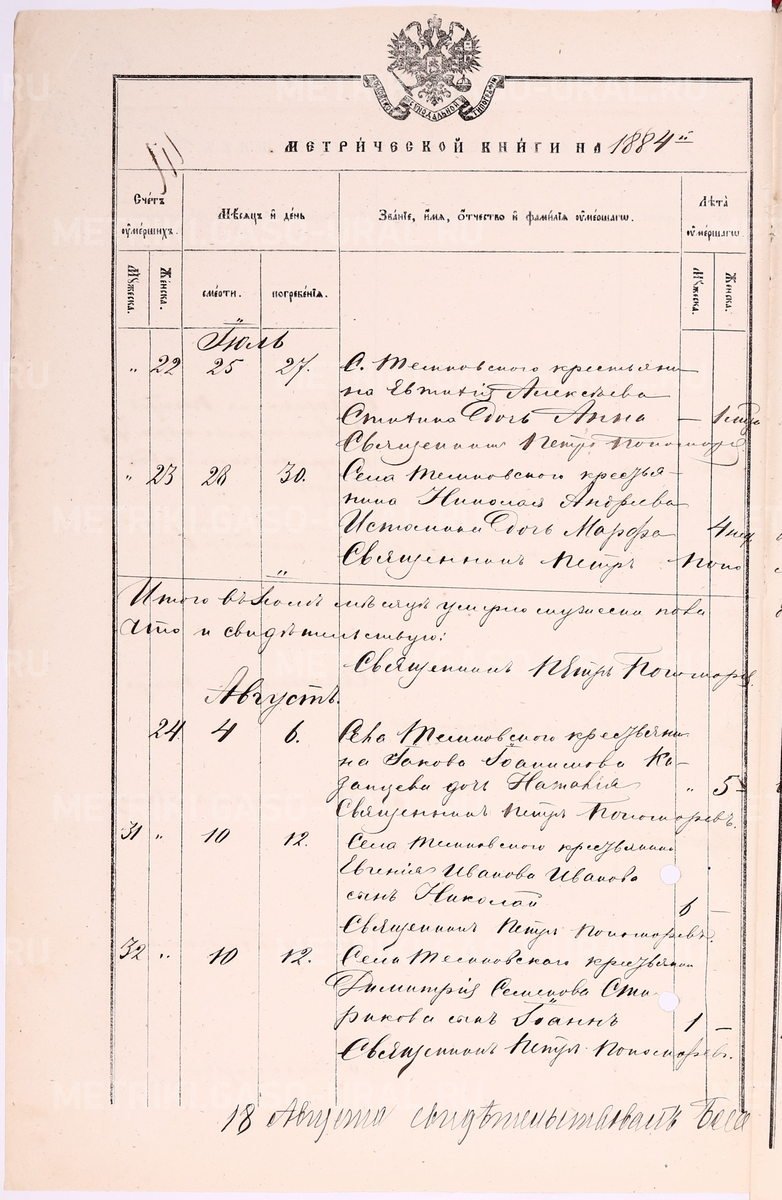 МЕТРИЧЕСКОЙ КНИГИ НА 1884 й
Счетъ умершихъ.
Мѣсяцъ и день
Званіе, имя, отчество и фамилія умершаго.
Лѣта умершаго
Мужеска.
Женска.
смерти.
погребенія.
Мужеска.
Женска.
Іюль
" 22 25 27. С. крестьяни
на Евтихія Алексѣева
дочь Анна — 1
Священникъ Петръ Пономаре
" 23 28 30. Села крестья-
нина Николая Андреева
Истомина дочь Марфа 4 нед.
Священникъ Петръ Поно
Итого въ Іюлѣ мѣсяцѣ умерло
Что и свидѣтельствую:
Священникъ Петръ Пономарев
Августъ.
24 4 6. Села крестьяни
на Іакова Іоакимова Ка-
занцева дочь Наталія " 5
Священникъ Петръ Пономаревъ.
31 " 10 12. Села крестьянина
Евгенія Иванова Иванова
сынъ Николай 6 —
Священникъ Петръ Пономаревъ.
32 " 10 12. Села крестьянина
Димитрія Семенова Ста-
рикова сынъ Іоаннъ 1 —
Священникъ Петръ Пономаревъ.
18 Августа свидѣтельствовалъ